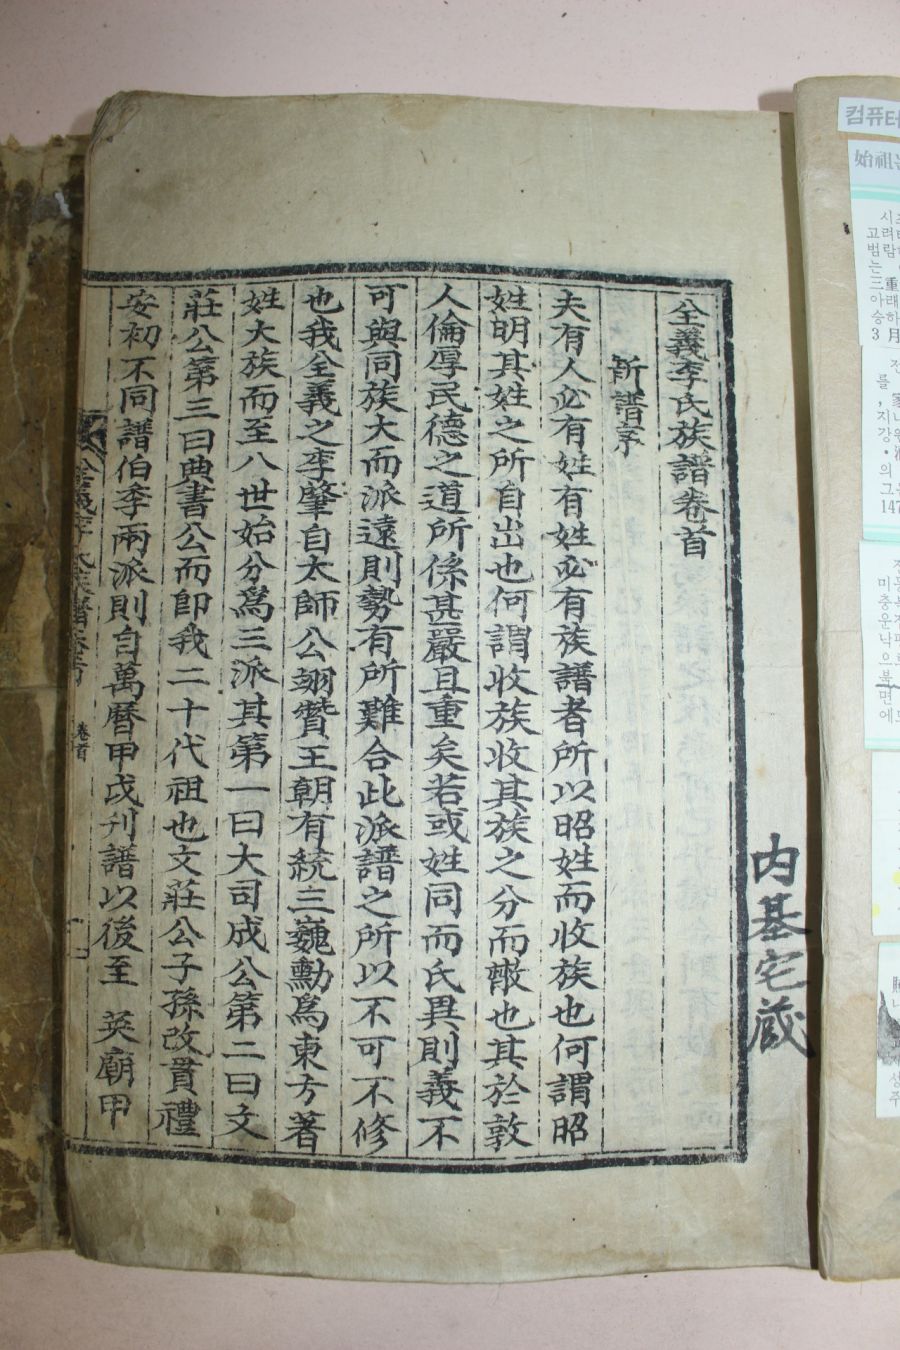 全義李氏族譜卷首
新譜序
夫有人必有姓有姓必有族譜者所以昭姓而收族也何謂昭
姓明其姓之所自出也何謂收族收其族之分而散也其於敦
人倫厚民德之道所係甚嚴且重矣若或姓同而氏異則義不
可與同族大而派遠則勢有所難合此派譜之所以不可不修
也我全義之李肇自太師公翊贊王朝有統三巍勳爲東方著
姓大族而至八世始分爲三派其第一曰大司成公第二曰文
莊公第三曰典書公而卽我二十代祖也文莊公子孫改貫禮
安初不同譜伯季兩派則自萬曆甲戌刋譜以後至 英廟甲
全義李氏族譜卷首
卷首
一
內基宅藏
컴퓨터
始祖